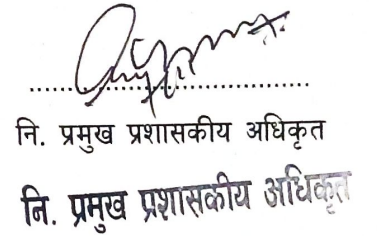 नि. प्रमुख प्रशासकीय अधिकृत
नि. प्रमुख प्रशासकीय अधिकृत